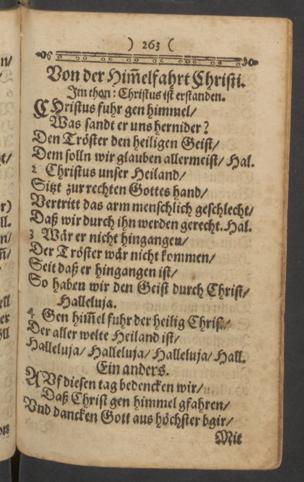 ) 263 (
Von der Him̃elfahrt Christi.
Im thon: Christus ist erstanden.
CHristus fuhr gen himmel/
Was sandt er uns hernider?
Den Tröster den heiligen Geist/
Dem solln wir glauben allermeist/ Hal.
2 Christus unser Heiland/
Sitzt zur rechten Gottes hand/
Vertritt das arm menschlich geschlecht/
Daß wir durch ihn werden gerecht. Hal.
3 Wär er nicht hingangen/
Der Tröster wär nicht kommen/
Seit daß er hingangen ist/
So haben wir den Geist durch Christ/
Halleluja.
4 Gen him̃el fuhr der heilig Christ/
Der aller welte Heiland ist/
Halleluja/ Halleluja/ Halleluja/ Hall.
Ein anders.
AUf diesen tag bedencken wir/
Daß Christ gen himmel gfahren/
Und dancken Gott aus höchster bgir/
Mit